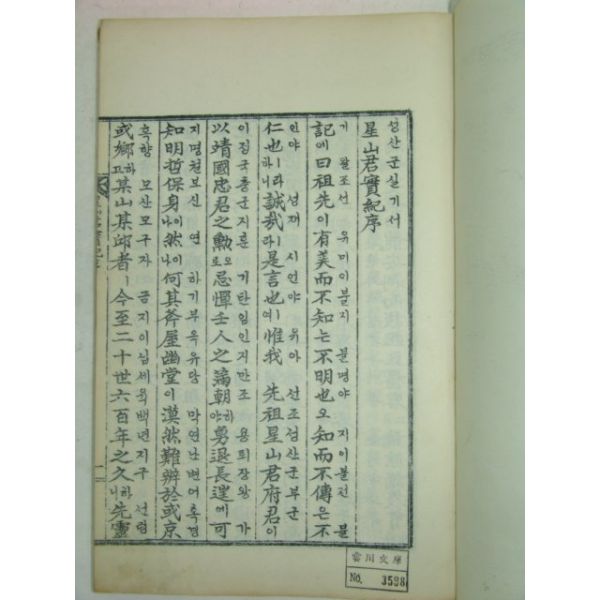 성산군실기서
星山君實紀序
기 왈조선 유미이불지 불명야 지이불전 불
記에曰祖先이有美而不知는不明也오知而不傳은不
인야 성재 시언야 유아 선조성산군부군
仁也ㅣ라하니誠哉라是言也ㅣ여惟我 先祖星山君府君이
이정국충군지훈 기탄임인지만조 용퇴장왕 가
以靖國忠君之勳으로忌憚壬人之滿朝하야勇退長迬에可
지명철보신 연 하기부옥유당 막연난변어혹경
知明哲保身이나然이나何其斧屋幽堂이漠然難辨於或京
혹향 모산모구자 금지이십세육백년지구 선령
或鄕하고某山某邱者ㅣ今至二十世六百年之久하니先靈
雷川文庫
No. 3598